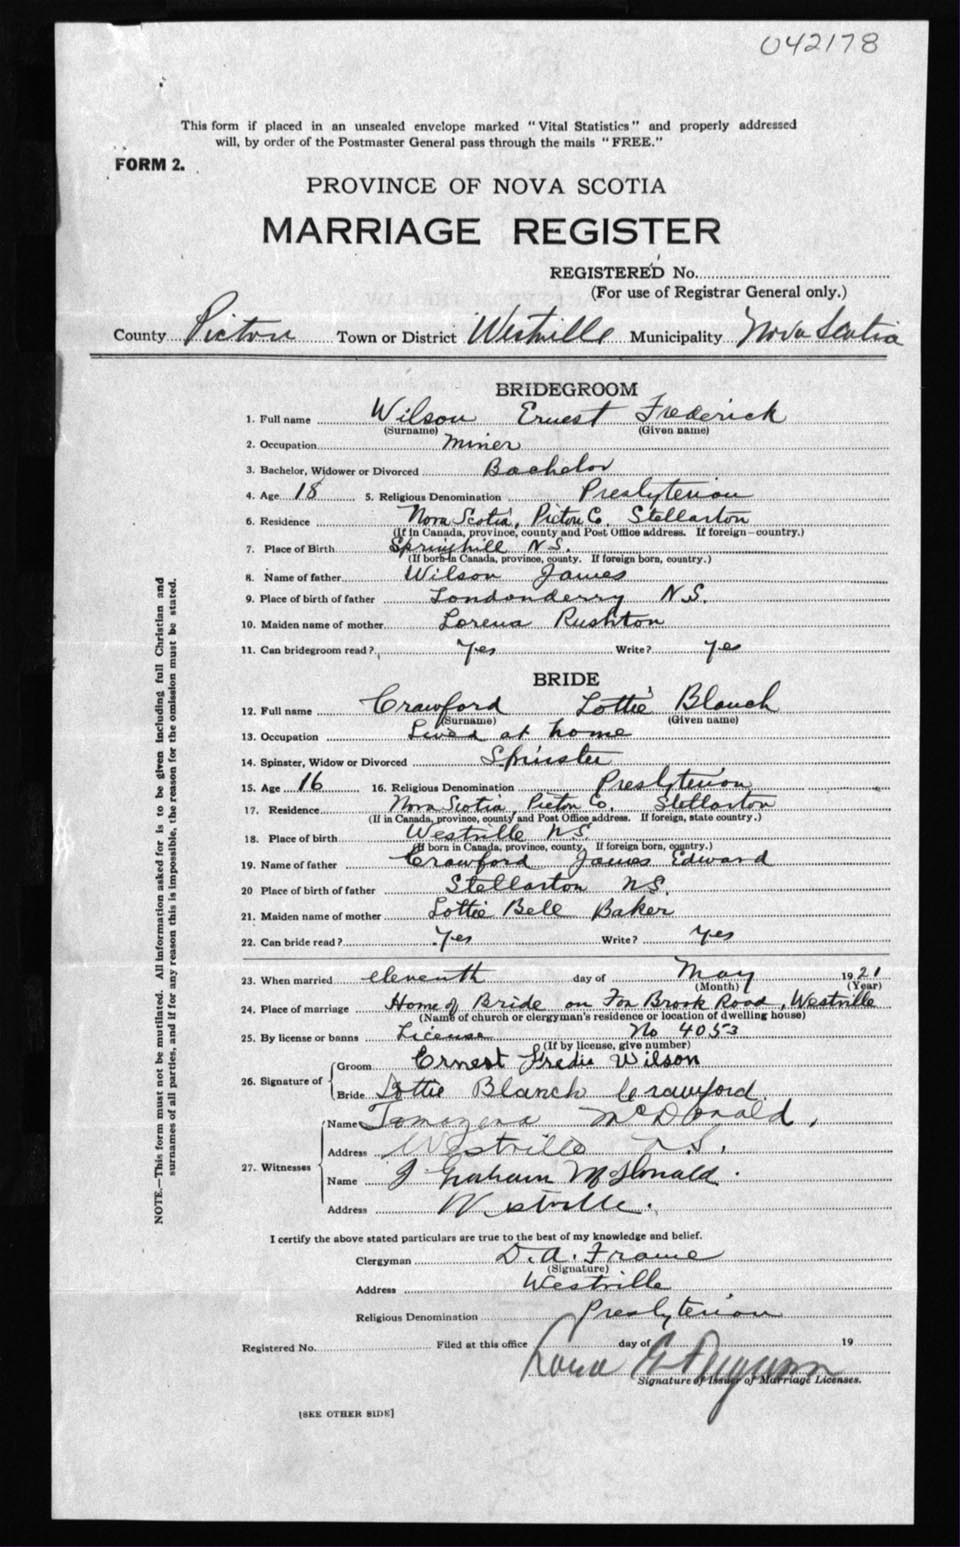 042178
This form if placed in an unsealed envelope marked "Vital Statistics" and properly addressed
will, by order of the Postmaster General pass through the mails "FREE."
FORM 2.
PROVINCE OF NOVA SCOTIA
MARRIAGE REGISTER
REGISTERED No.
(For use of Registrar General only.)
County Pictou Town or District Westville Municipality Nova Scotia
BRIDEGROOM
1. Full name Wilson Ernest Frederick
(Surname) (Given name)
2. Occupation miner
3. Bachelor, Widower or Divorced Bachelor
4. Age 18 5. Religious Denomination Presbyterian
6. Residence Nova Scotia, Pictou Co. Stellarton
(If in Canada, province, county and Post Office address. If foreign—country.)
7. Place of Birth Springhill N.S.
(If born in Canada, province, county. If foreign born, country.)
8. Name of father Wilson James
9. Place of birth of father Londonderry N.S.
10. Maiden name of mother Lorena Rushton
11. Can bridegroom read? Yes Write? Yes
BRIDE
12. Full name Crawford Lottie Blanch
(Surname) (Given name)
13. Occupation Lived at home
14. Spinster, Widow or Divorced Spinster
15. Age 16 16. Religious Denomination Presbyterian
17. Residence Nova Scotia, Pictou Co. Stellarton
(If in Canada, province, county and Post Office address. If foreign, state country.)
18. Place of birth Westville N.S.
(If born in Canada, province, county. If foreign born, country.)
19. Name of father Crawford James Edward
20 Place of birth of father Stellarton N.S.
21. Maiden name of mother Lottie Bell Baker
22. Can bride read? Yes Write? Yes
23. When married eleventh day of May 1921
(Month) (Year)
24. Place of marriage Home of Bride on Fox Brook Road, Westville
(Name of church or clergyman's residence or location of dwelling house)
25. By license or banns License No 4053
(If by license, give number)
26. Signature of Groom Ernest Fredie Wilson
Bride Lottie Blanch Crawford
27. Witnesses Name McDonald,
Address Westville N.S.
Name J Graham McDonald.
Address Westville.
I certify the above stated particulars are true to the best of my knowledge and belief.
Clergyman D. A. Frame
(Signature)
Address Westville
Religious Denomination Presbyterian
Registered No. Filed at this office day of 19
Signature of Issuer of Marriage Licenses.
[SEE OTHER SIDE]
NOTE.—This form must not be mutilated. All information asked for is to be given including full Christian and
surnames of all parties, and if for any reason this is impossible, the reason for the omission must be stated.